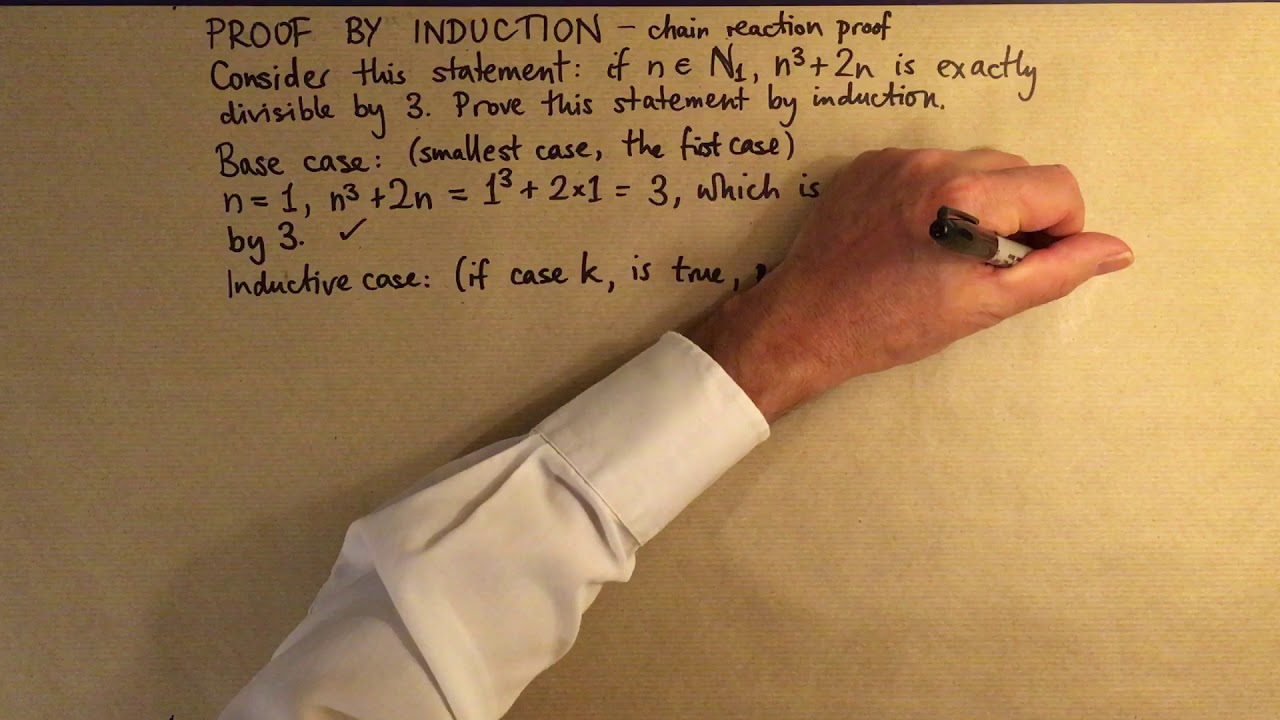 PROOF BY INDUCTION – chain reaction proof
Consider this statement: if n ∈ ℕ₁, n³+2n is exactly
divisible by 3. Prove this statement by induction.
Base case: (smallest case, the first case)
n = 1, n³+2n = 1³ + 2×1 = 3, which is
by 3. ✓
Inductive case: (if case k, is true,